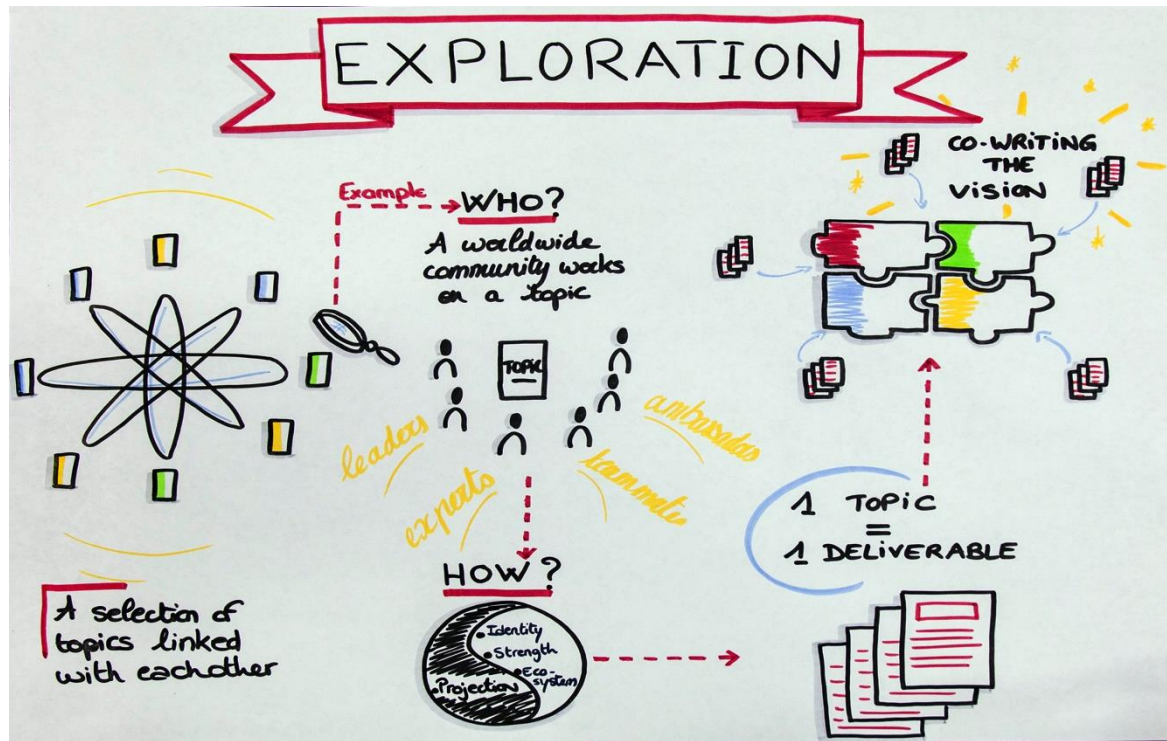 EXPLORATION
Example
WHO?
A worldwide
community works
on a topic
TOPIC
leaders
experts
teammates
ambassadors
HOW?
Identity
Strength
Eco-
system
Projection
A selection of
topics linked
with eachother
CO-WRITING
THE
VISION
1 TOPIC
=
1 DELIVERABLE